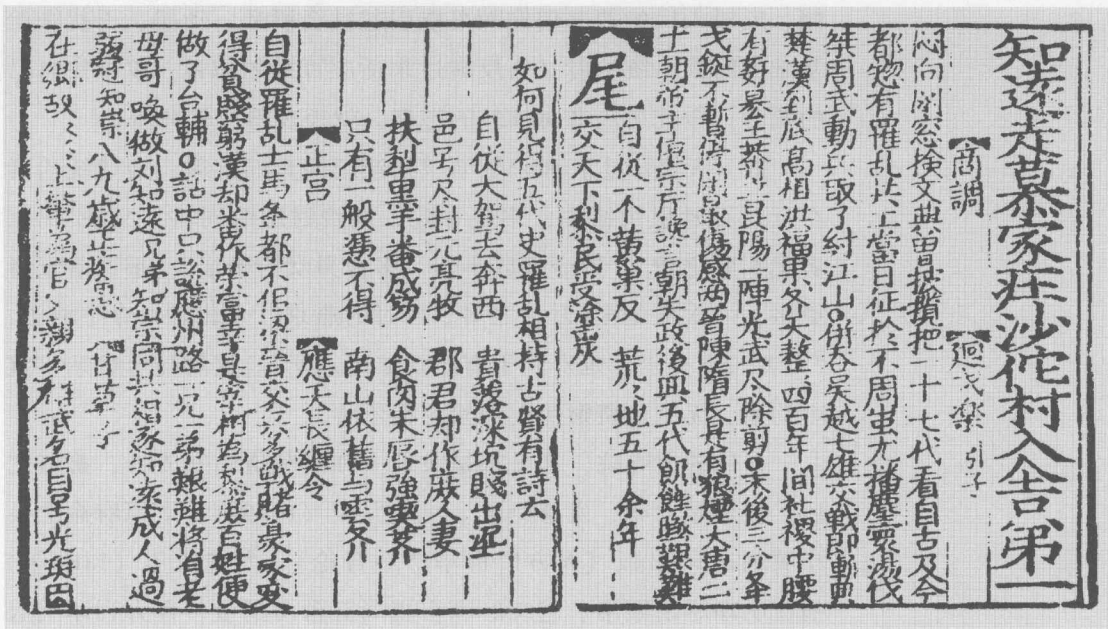 知遠走慕家庄沙佗村入舍第一
商調　迴戈樂 引子
悶向閑窓検文典曽披攬把一十七代看自古及今
都惣有罹乱共工當日征於不周蚩尤播塵寰湯伐
桀周武動兵取了紂江山○併吞吴越七雄交戰即漸興
楚漢到底高祖洪福果各大整四百年間社稷中腰
有奸臣王莽 昆陽一陣光武尽除剪○末後三分举
戈鋋不暫停閑最傷感兩晋陳隋長是有狼煙大唐二
十一朝帝主僖宗听讒言朝失政後興五代飢饉 艱難
尾　自從一个黄巢反　荒〻地五十余年
交天下黎民受塗炭
如何見得五代史罹乱相持古賢有詩云
自从大駕去奔西　貴落深坑賤出泥
邑号尽封元亮牧　郡君却作庶人妻
扶犁黒手番成笏　食肉朱唇強喫虀
只有一般憑不得　南山依舊与雲齐
正宫　應天長纏令
自從罹乱士馬举都不 梁晋交 多戰賭豪家变
得貧賤窮漢却番作荣富幸是宰相為黎庶百姓便
做了台輔○話中只說應州路一兄一弟艱難將自老
母哥喚做刘知遠兄弟知崇同共相逐知遠成人過
弱冠知崇八九歳正痴憨　甘草子
在鄉 為官 父 多 武名目呈光珽因